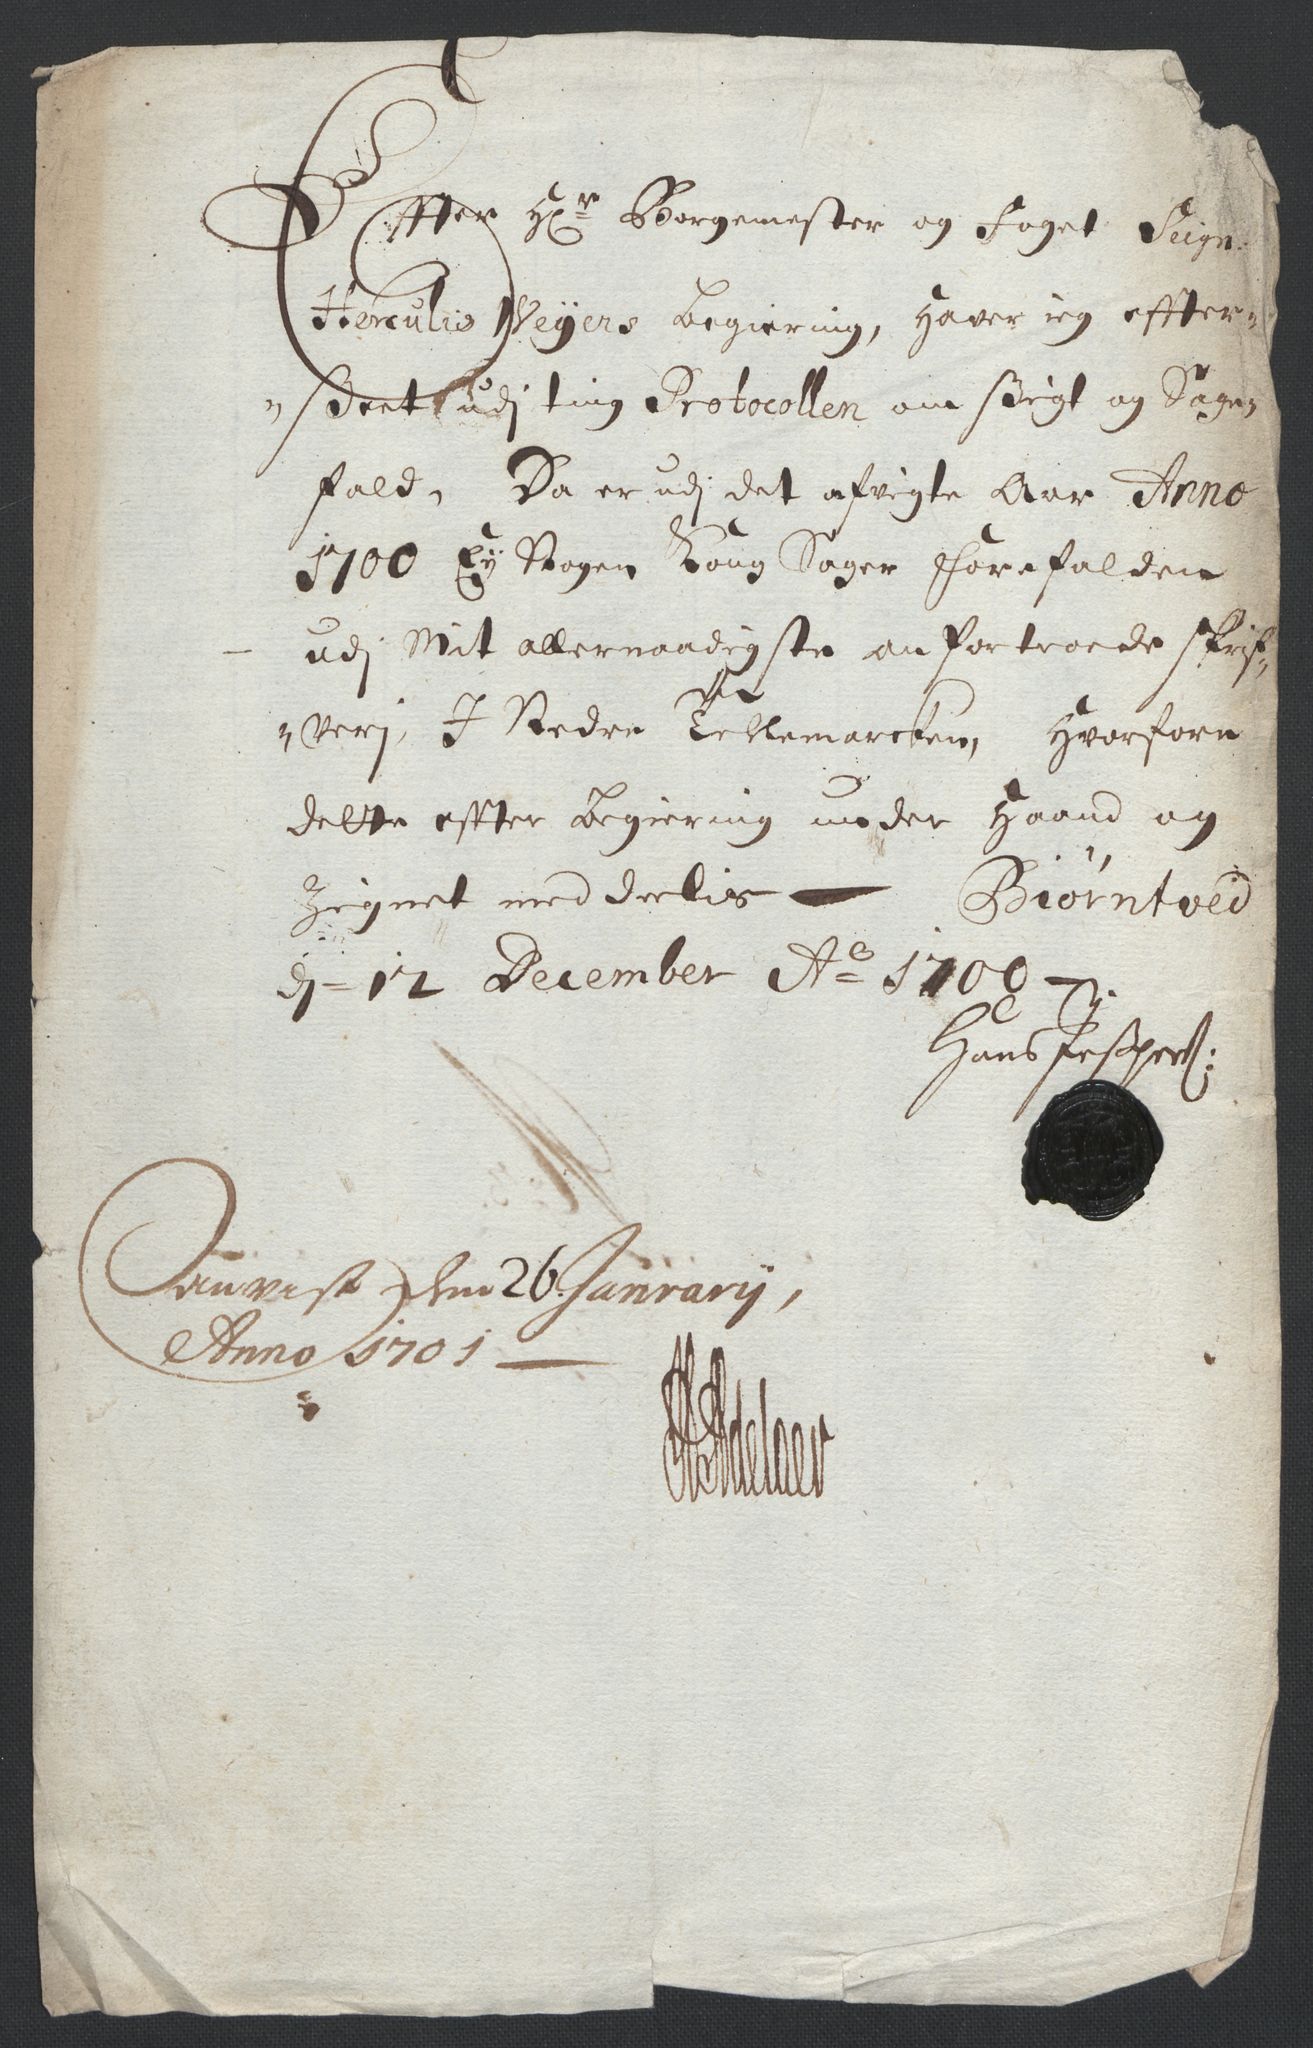 Effter Hr Borgemester og Foget Seign:
Herculis Weyers begiering, haver ieg effter-
seet udj ting Protocollen om Sigt og Sage-
fald, Da er udj det afvigte Aar Anno
1700 Ey Nogen Kong Sager forefalden
udj Mit allernaadigste anfortroede Skrif-
verj, I Nedre Tellemarcken, Hvorfore
dette effter begiering under Haand og
Zignet meddeelis — Biørntved
dj 12 December Ao 1700
Hans Jesspers:
Anvist den 26 Januarij,
Anno 1701 —
Adelaer